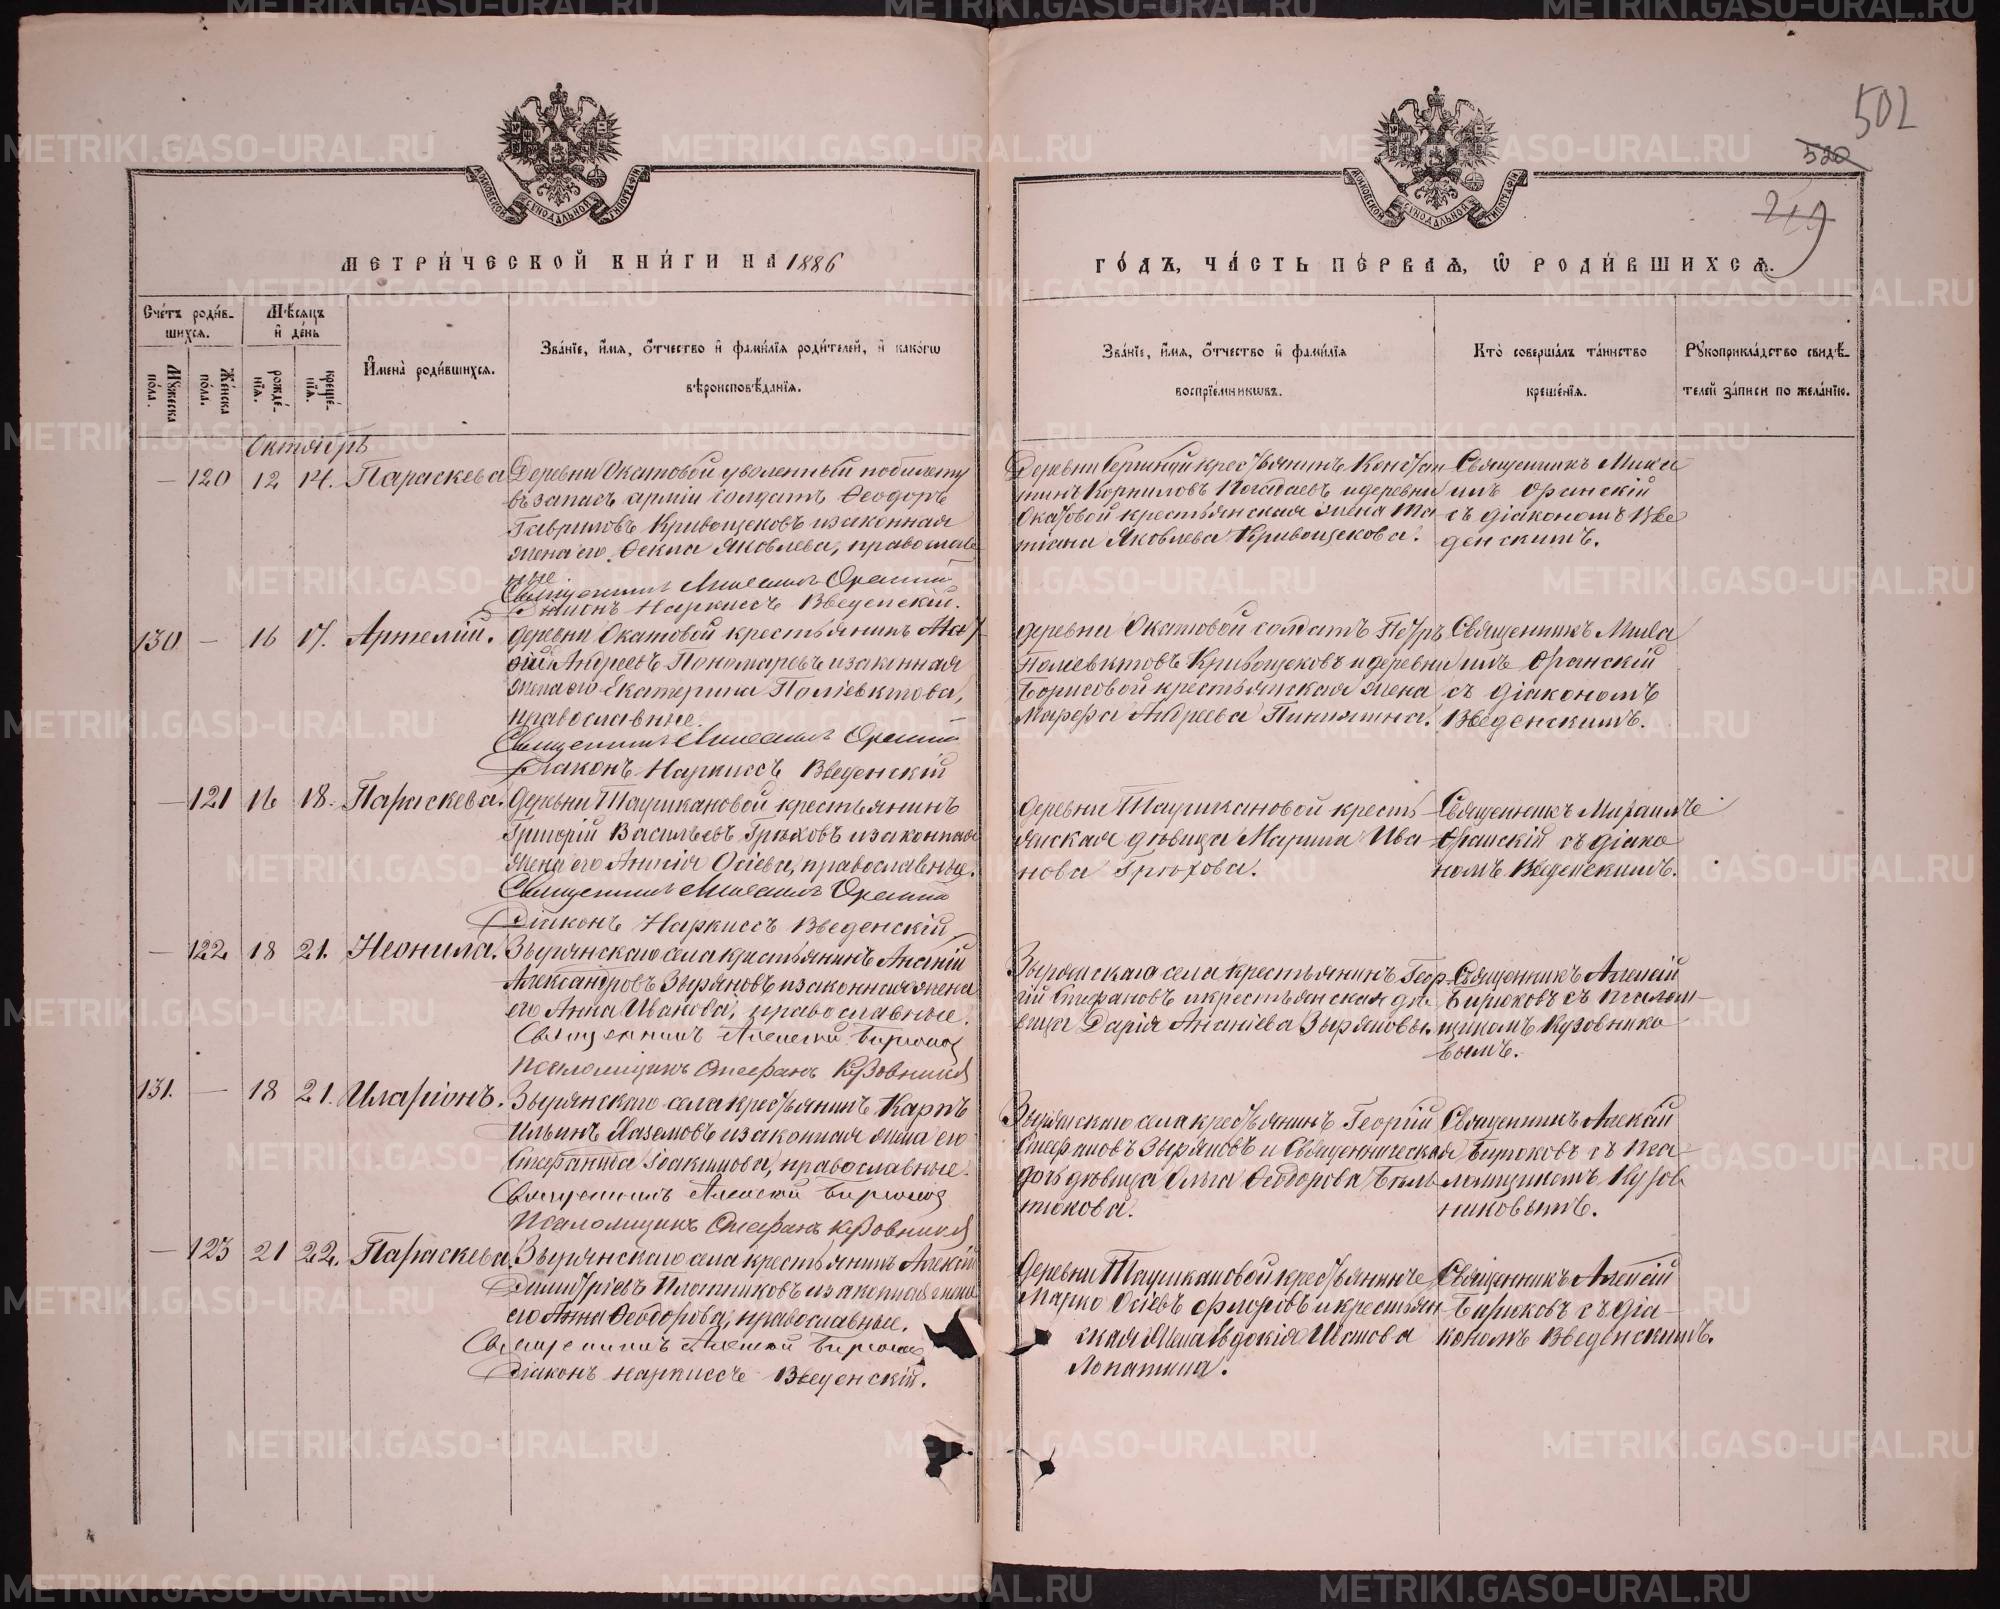 502
520
219
МЕТРИ́ЧЕСКОЙ КНИ́ГИ НА 1886
ГО́ДЪ, ЧА́СТЬ ПЕ́РВАЯ, Ѡ РОДИ́ВШИХСЯ.
Сче́тъ роди́в-
шихся.
Мужеска по́ла.
Же́нска по́ла.
Мѣ́сяцъ
и де́нь
рожде́-
нїя.
креще́-
нїя.
Имена̀ роди́вшихся.
Зва́нїе, и́мя, о́тчество и фами́лїя роди́телей, и како́гѡ
вѣроисповѣ́данїя.
Зва́нїе, и́мя, о́тчество и фами́лїя
воспрїе́мниковъ.
Кто̀ соверша́лъ та́инство
креще́нїя.
Рукоприкла́дство свидѣ́-
телей за́писи по жела́нїю.
Октябрь
— 120 12 14. Параскева
Деревни Окатовой уволенный по билету
въ запасъ арміи солдатъ Ѳеодоръ
Гавриловъ Кривощековъ и законная
жена его Ѳекла Яковлева, православ-
ные
Священникъ Михаилъ Оранскій
Діаконъ Наркиссъ Введенскій.
Деревни крестьянинъ Констан-
тинъ Корниловъ и деревни
Окатовой крестьянская жена Та-
тіана Яковлева Кривощекова.
Священникъ Миха-
илъ Оранскій
съ діакономъ Вве-
денскимъ.
130 — 16 17. Артемій.
деревни Окатовой крестьянинъ
Андреевъ Пономаревъ и законная
жена его Екатерина Поліевктова,
православные.
Священникъ Михаилъ Оранскій
Діаконъ Наркиссъ Введенскій
деревни Окатовой солдатъ Петръ
Поліевктовъ Кривощековъ и деревни
Борисовой крестьянская жена
Марѳа Андреева
Священникъ Миха-
илъ Оранскій
съ діакономъ
Введенскимъ.
— 121 16 18. Параскева.
Деревни Таушкановой крестьянинъ
Григорій Васильевъ Грѣховъ и законная
жена его Анисія Осіева, православные.
Священникъ Михаилъ Оранскій
Діаконъ Наркиссъ Введенскій
деревни Таушкановой кресть-
янская дѣвица Марина Ива-
нова Грѣхова.
Священникъ Михаилъ
Оранскій съ діако-
номъ Введенскимъ.
— 122 18 21. Неонила.
Зырянскаго села крестьянинъ Ананій
Александровъ Зыряновъ и законная жена
его Анна Иванова, православные.
Священникъ Алексій Бирюковъ
Псаломщикъ Стефанъ Кузовниковъ
Зырянскаго села крестьянинъ Геор-
гій Стефановъ и крестьянская дѣ-
вица Дарія Ананіева Зыряновы.
Священникъ Алексій
Бирюковъ съ псалом-
щикомъ Кузовнико-
вымъ.
131. — 18 21. Иларіонъ.
Зырянскаго села крестьянинъ Карпъ
Ильинъ и законная жена его
Стефанида Іоакимова, православные.
Священникъ Алексій Бирюковъ
Псаломщикъ Стефанъ Кузовниковъ
Зырянскаго села крестьянинъ Георгій
Стефановъ Зыряновъ и Священническая
дочь дѣвица Ольга Ѳеодорова Бѣль-
тюкова.
Священникъ Алексій
Бирюковъ съ пса-
ломщикомъ Кузов-
никовымъ.
— 123 21 22. Параскева.
Зырянскаго села крестьянинъ Алексій
Димитріевъ Плотниковъ и законная жена
его Анна Ѳеодорова, православные.
Священникъ Алексій Бирюковъ
Діаконъ Наркиссъ Введенскій.
Деревни Таушкановой крестьянинъ
Марко Осіевъ Флоровъ и крестьян-
ская жена Евдокія Иванова
Лопатина.
Священникъ Алексій
Бирюковъ съ діа-
кономъ Введенскимъ.